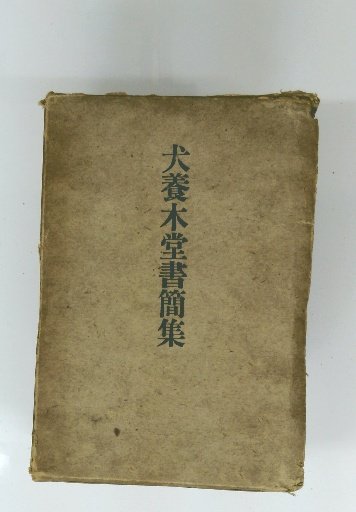 犬養木堂書簡集